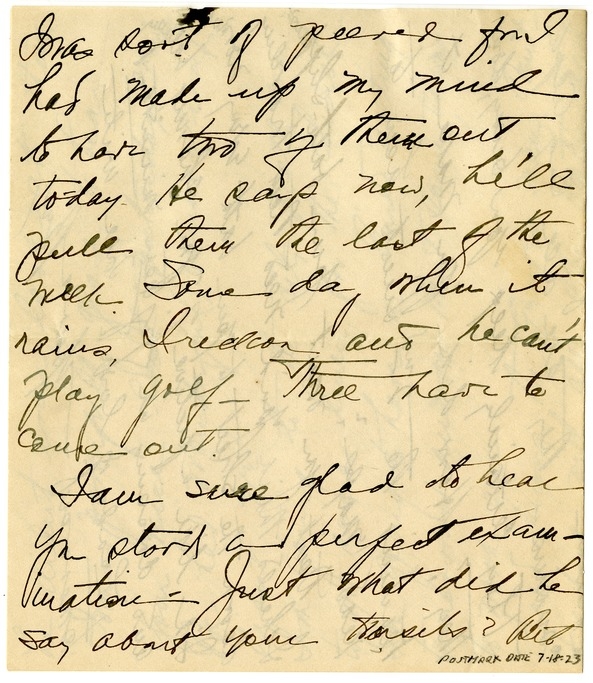 I was sort of peeved for I
had made up my mind
to have two of them out
today. He says now, he'll
pull them the last of the
week. Some day when it
rains, I reckon and he can't
play golf — Three have to
come out.
I am sure glad to hear
you stood a perfect exam-
ination — Just what did he
say about your tonsils? Bet
POSTMARK DATE 7-18-23